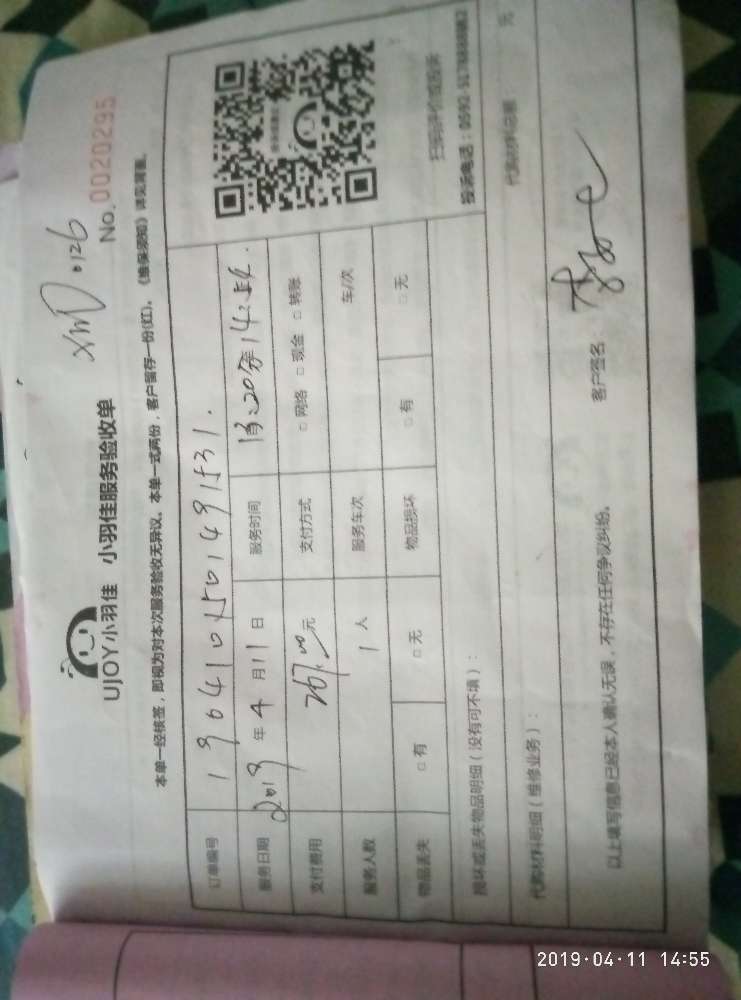 UJOY小羽佳 小羽佳服务验收单
XMD0126
No.0020295
本单一经核签，即视为对本次服务验收无异议。本单一式两份，客户留存一份(红)。《维保须知》详见背面。
订单编号 1904101501491531.
服务日期 2019年4月11日 服务时间 13:20至14:54.
支付费用 267.00元 支付方式 □网络 □现金 □转账
服务人数 1人 服务车次 车/次
物品丢失 □有 □无 物品损坏 □有 □无
扫码评价或投诉
损坏或丢失物品明细（没有可不填）：
代购材料明细（维修业务）： 代购材料总额： 元
以上填写信息已经本人确认无误，不存在任何争议纠纷。 客户签名：
2019·04·11 14:55